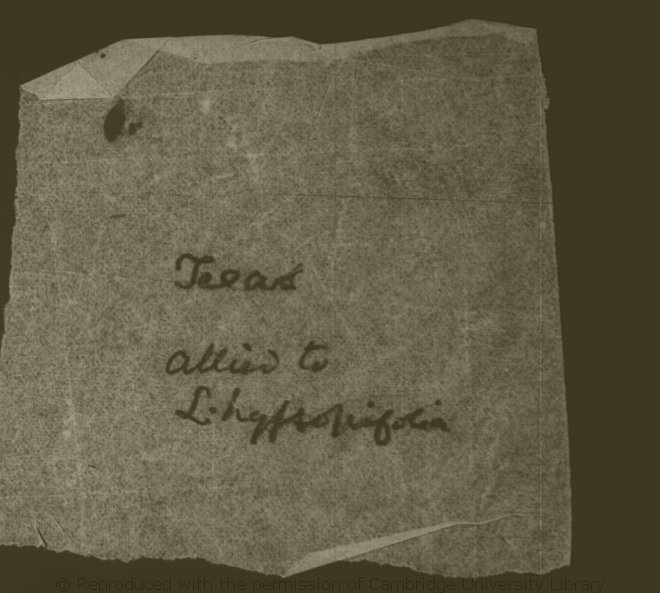 Texas
allied to
L. hyssopifolia
© Reproduced with the permission of Cambridge University Library